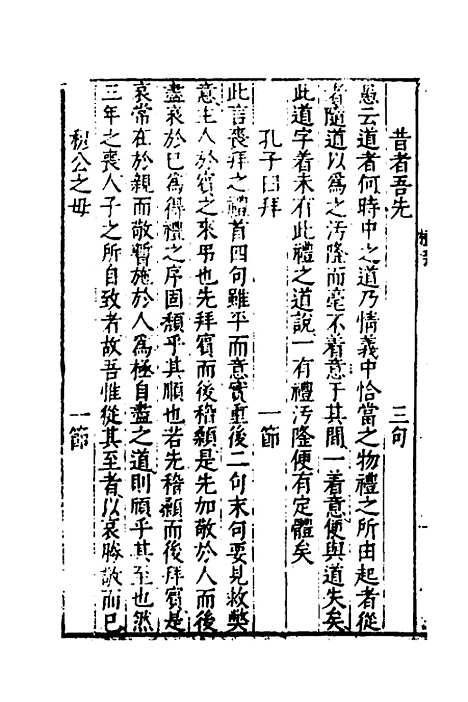 昔者吾先　三句
愚云道者何時中之道乃情義中恰當之物禮之所由起者從
者隨道以為之汚隆而毫不着意于其間一着意便與道失矣
此道字着未有此禮之道說一有禮汚隆便有定體矣
孔子曰拜　一節
此言喪拜之禮首四句雖平而意實重後二句末句要見救獘
意主人於賓之來吊也先拜賓而後稽顙是先加敬於人而後
盡哀於已為得禮之序固頽乎其順也若先稽顙而後拜賓是
哀常在於親而敬暫施於人為極自盡之道則頎乎其至也然
三年之喪人子之所自致者故吾惟從其至者以哀勝敬而已
穆公之母　一節